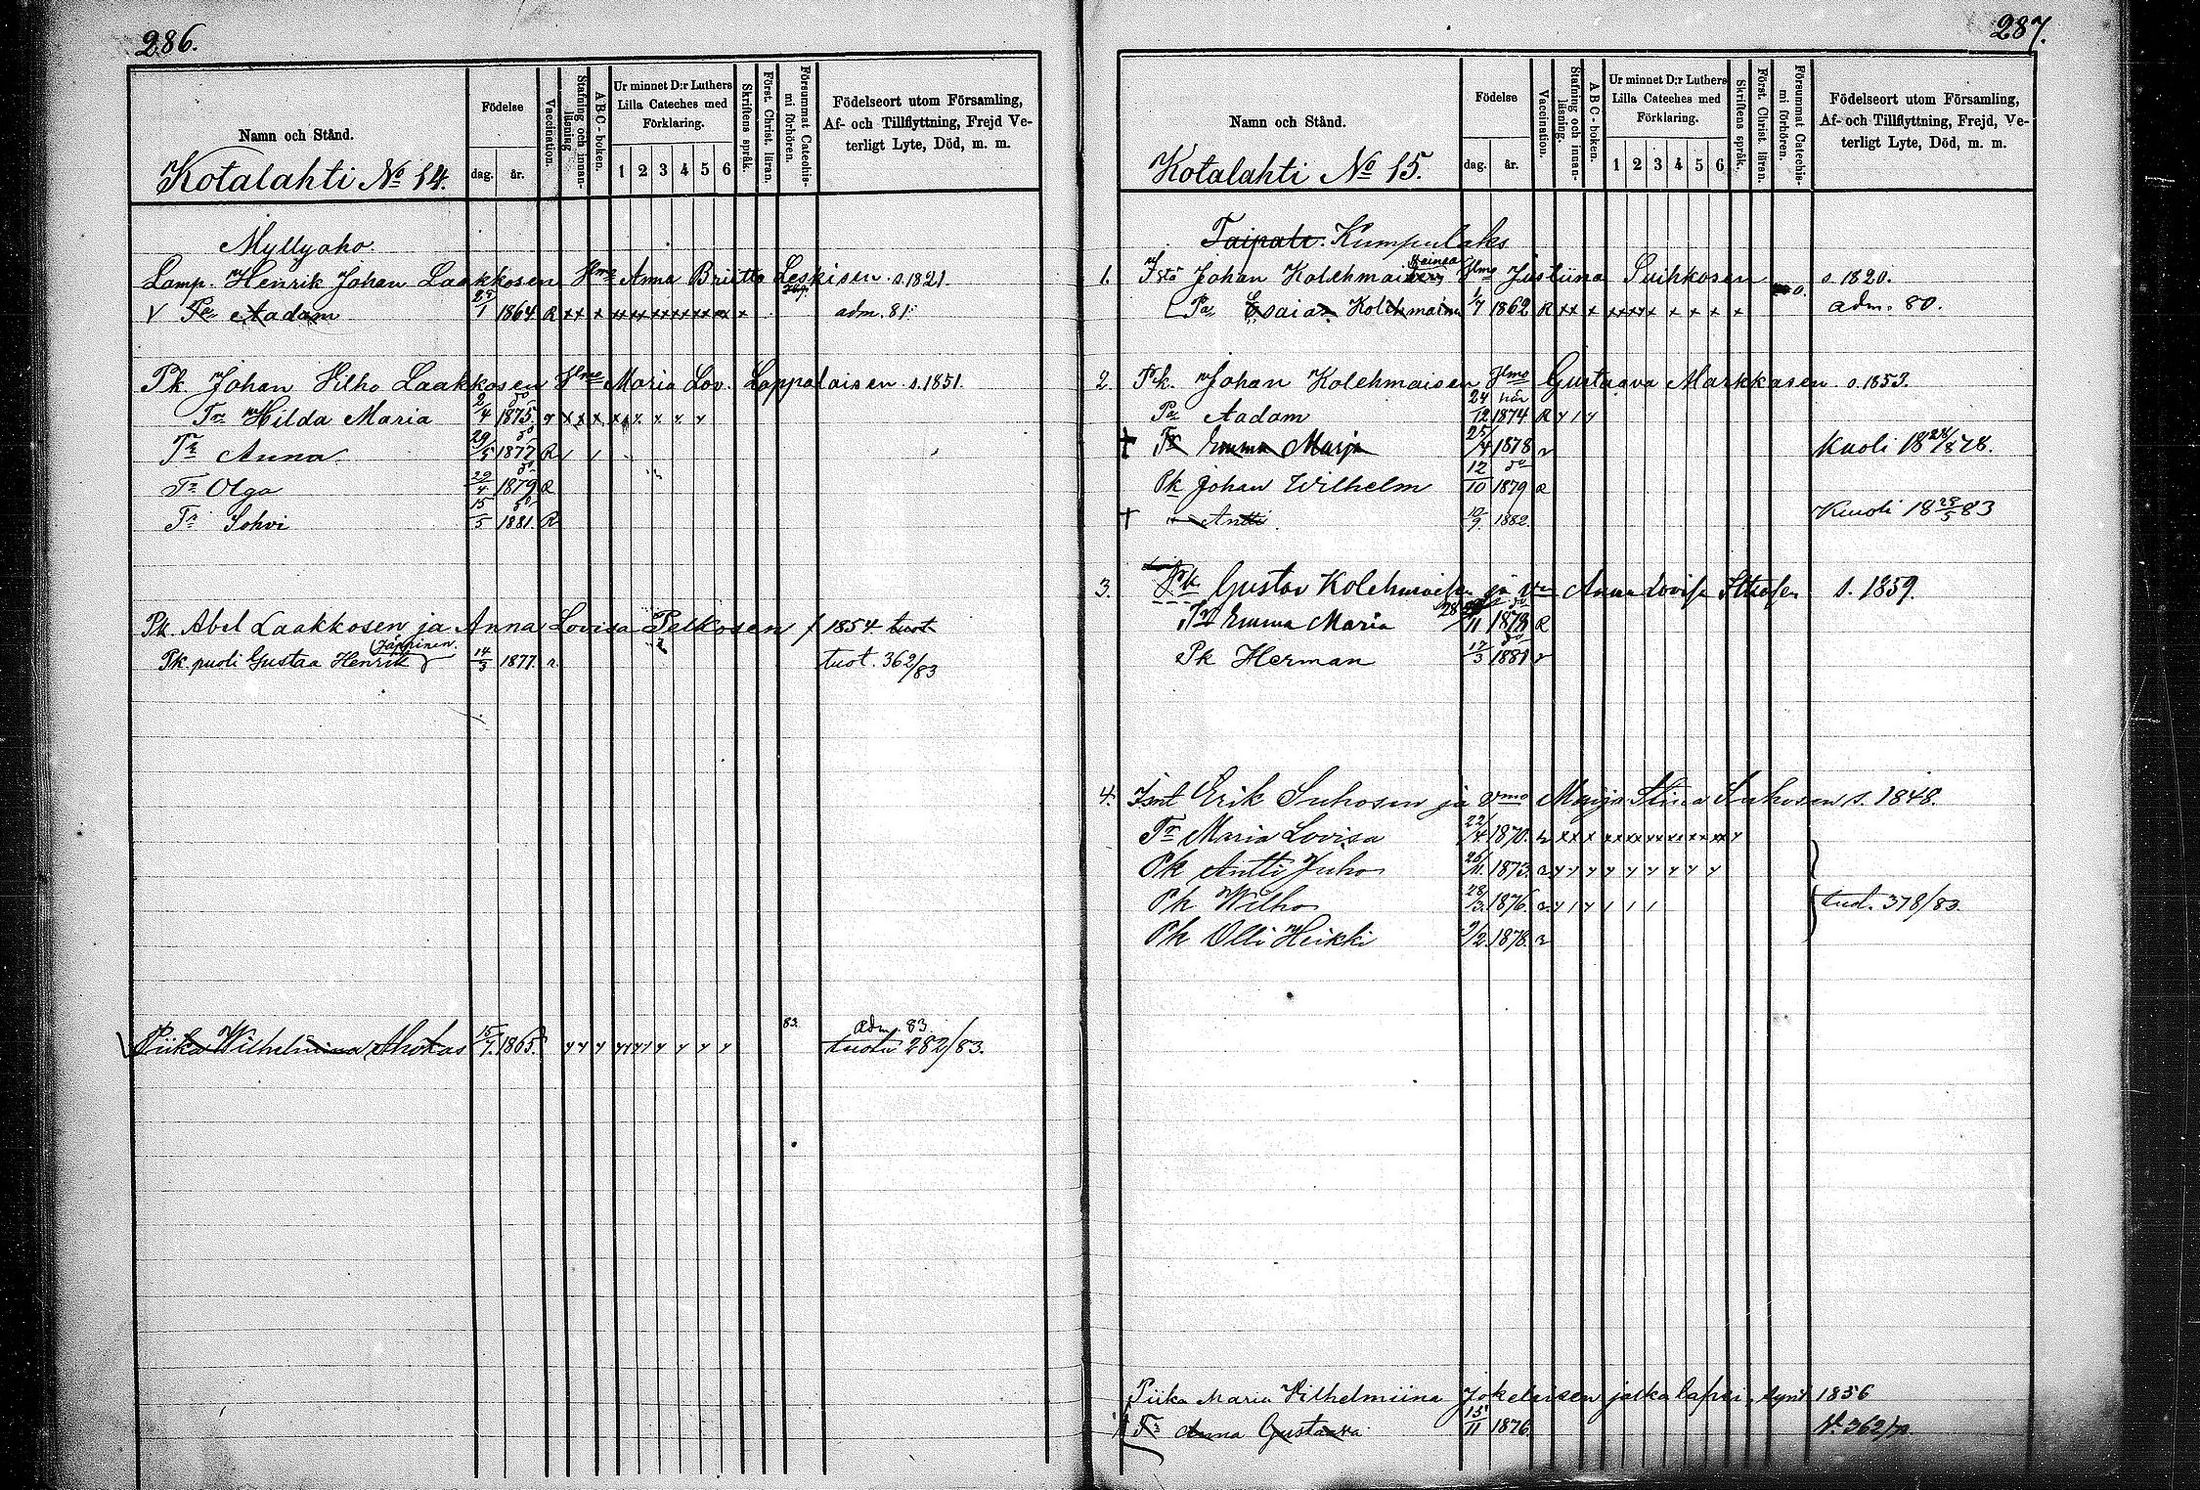 286.
Namn och Stånd.
Födelse
dag.
år.
Vaccination.
Stafning och innan-läsning
A B C - boken.
Ur minnet D:r Luthers
Lilla Cateches med
Förklaring.
1 2 3 4 5 6
Skriftens språk.
Först. Christ. läran.
Försummat Catechis-
mi förhören.
Födelseort utom Församling,
Af- och Tillflyttning, Frejd Ve-
terligt Lyte, Död, m. m.
Kotalahti No 14.
Myllyaho.
Lamp. Henrik Johan Laakkosen Anna Briitta Leskisen s. 1821
V Pa Aadam 1864 R x x x x x x x x x x x adm. 81
Pk Johan Vilho Laakkosen Maria Lov. Lappalaisen s. 1851.
Tr Hilda Maria 2/4 1875
Tr Anna 29/5 1877 R
Tr Olga 29/4 1879 R
Tr Sohvi 15/5 1881 R
Pk. Abel Laakkosen ja Anna Lovisa Pelkosen f 1854 tuot
Jäppinen
Pk puoli Gustaa Henrik 14/3 1877. tuot. 362/83
83. adm. 83.
Piika Wilhelmina Ahotas 15/7 1865. tuotu 282/83.
287.
Namn och Stånd.
Födelse
dag.
år.
Vaccination.
Stafning och innan-läsning.
A B C - boken.
Ur minnet D:r Luthers
Lilla Cateches med
Förklaring.
1 2 3 4 5 6
Skriftens språk.
Först. Christ. läran.
Försummat Catechis-
mi förhören.
Födelseort utom Församling,
Af- och Tillflyttning, Frejd, Ve-
terligt Lyte, Död, m. m.
Kotalahti No 15.
Taipale. Kumpulaks
1. Johan Kolehmaisen Justiina Suihkosen s. 1820.
Pa Esaias Kolehmainen 1/7 1862 R x x x x x x x x x x adm. 80.
2. Pk. Johan Kolehmaisen Gustaava Markkasen s. 1853.
Pa Aadam 24/12 1874 R
+ Tr Emma Marja 25/4 1878 Kuoli 18 24/8 78.
Pk Johan Wilhelm 12/10 1879 R
+ Antti 10/9. 1882. Kuoli 18 28/5 83
3. Pk Gustav Kolehmaisen ja Anna Lovisa s. 1859.
Tr Emma Maria 11 1878 R
Pk Herman 17/3 1881
4. Erik Suhosen ja Marja Stina Suhosen s. 1848.
Tr Maria Lovisa 22/4 1870.
Pk Antti Juho 26/11. 1873.
Pk Wilho 28/3. 1876. tuot. 378/83.
Pk Olli Heikki 9/2. 1878.
Piika Maria Vilhelmiina Jokelaisen jalkalapsi, synt 1856
Tr Anna Gustaava 15/11 1876.